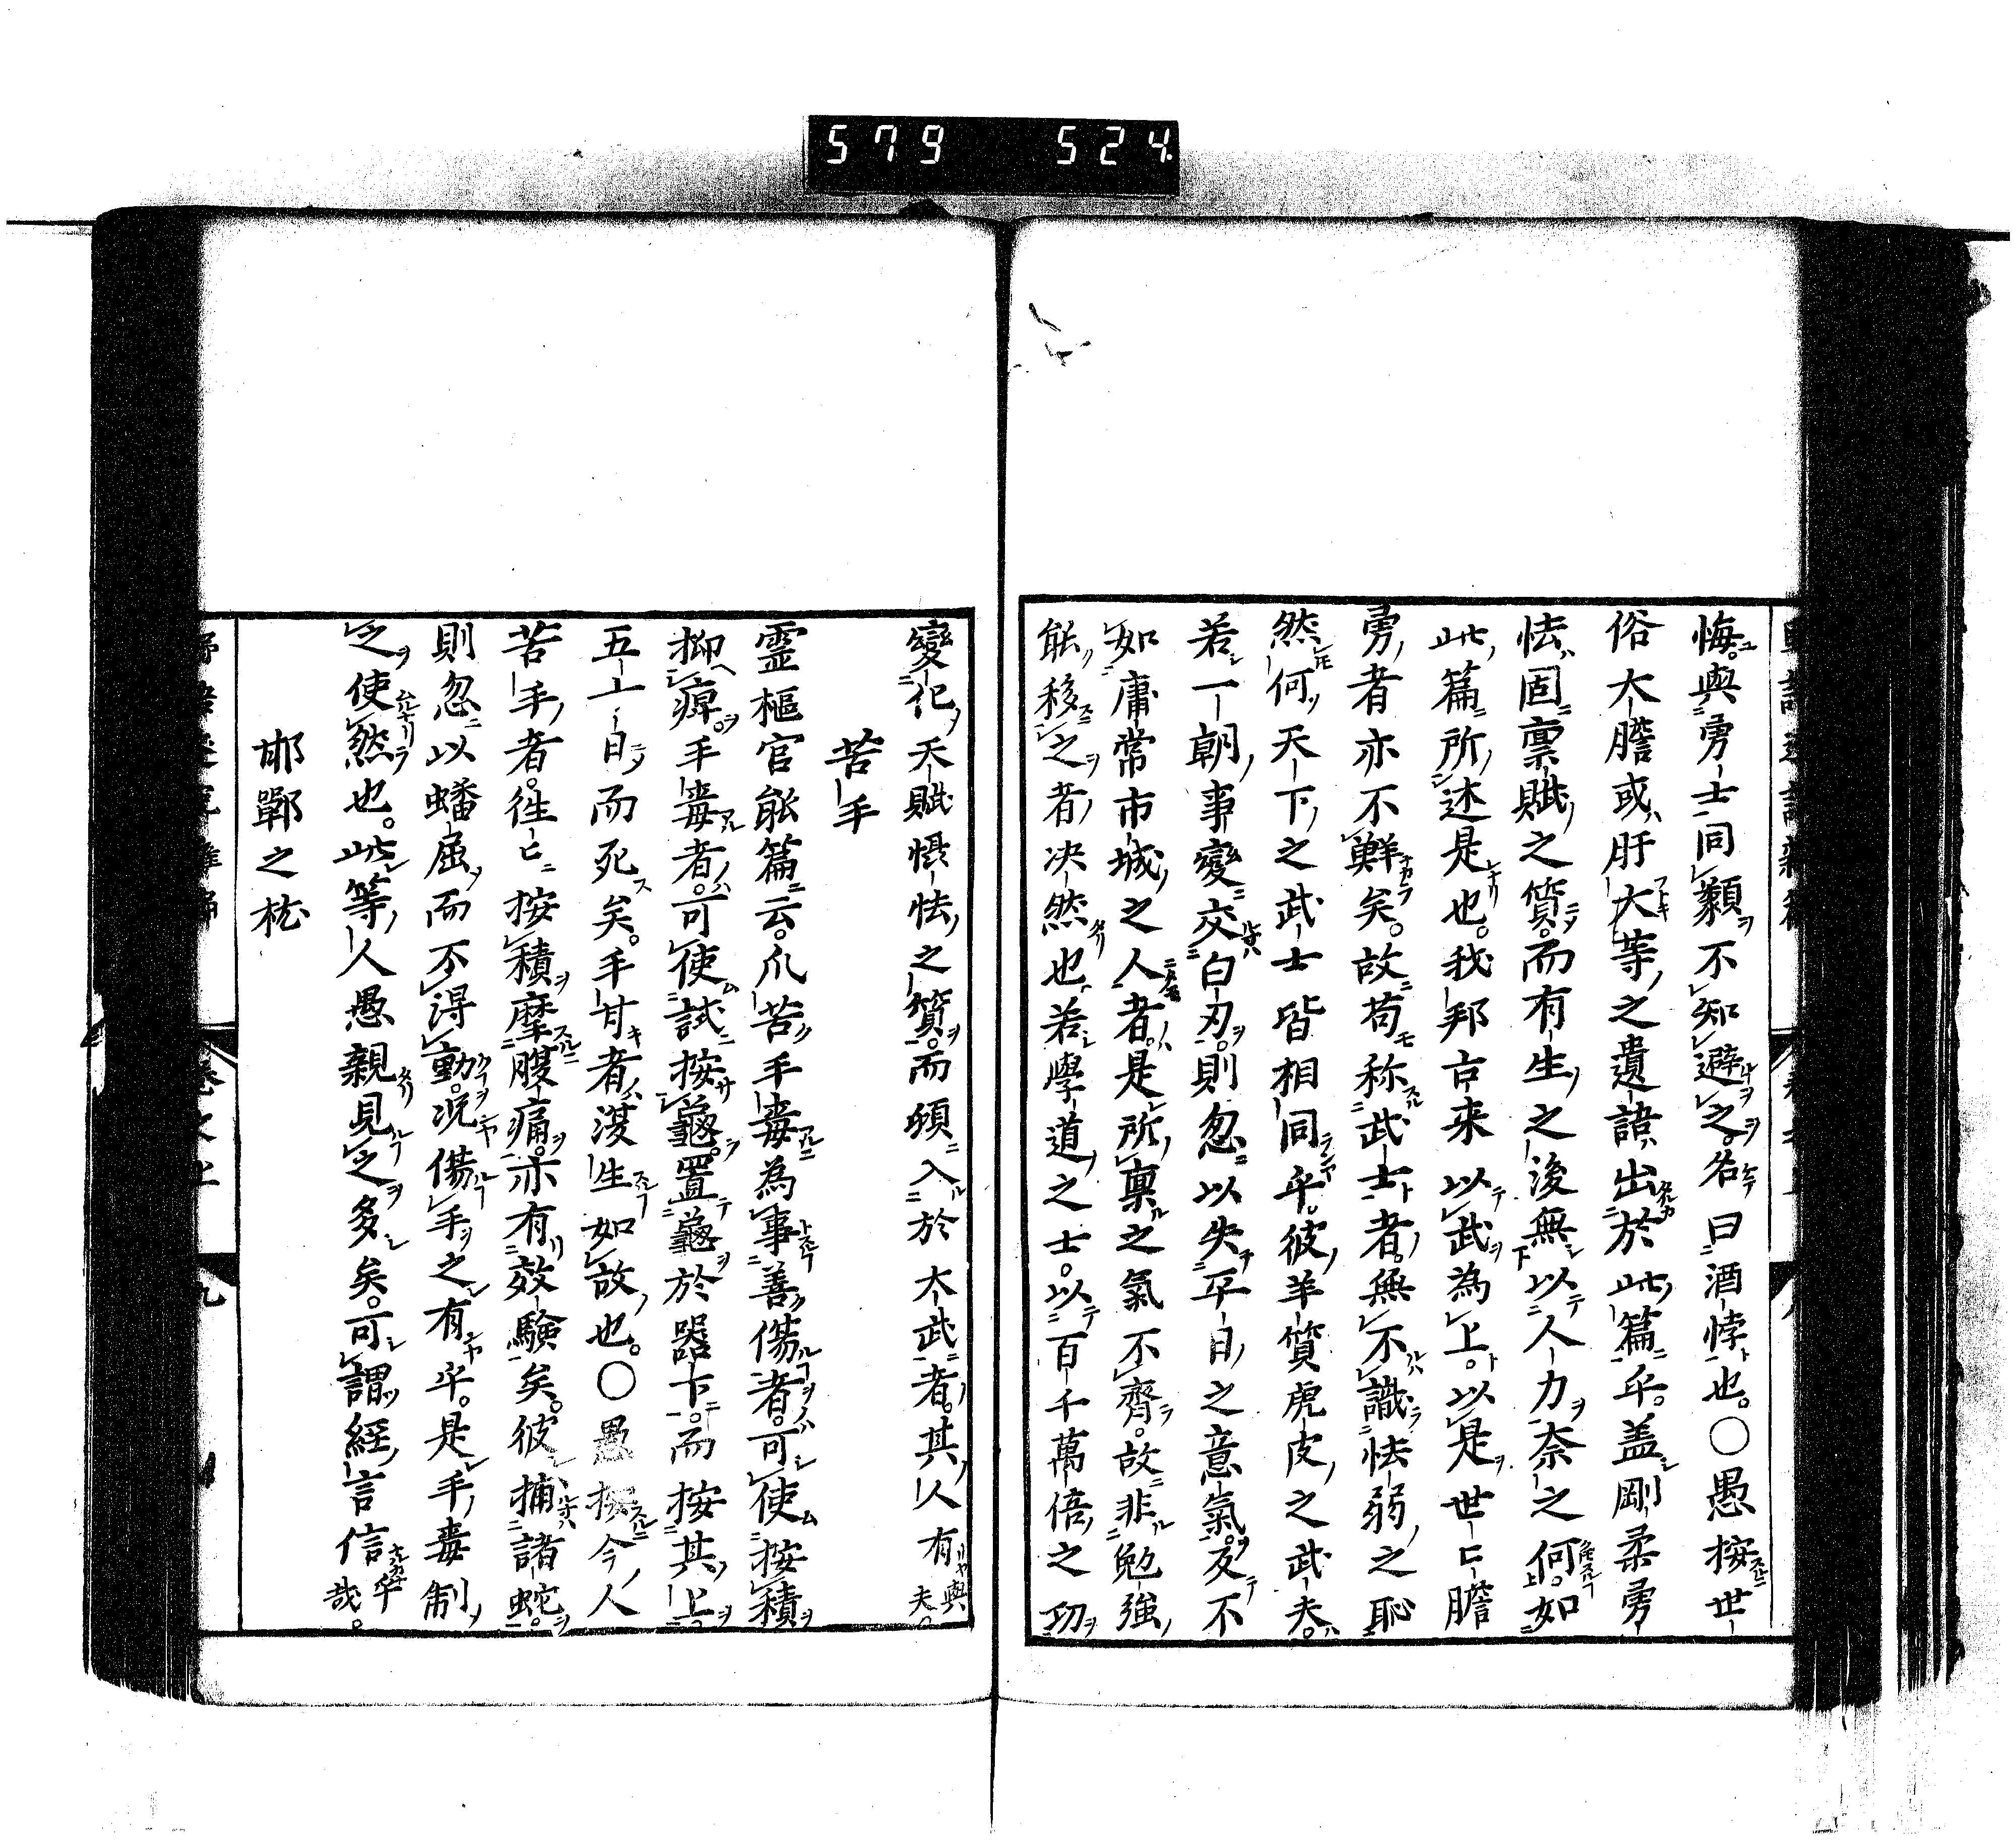 579 524
悔。與勇士同類不知避之。名曰酒悖也。〇愚按世
俗大膽或肝大等之遺諺出於此篇乎。盖剛柔勇
怯固稟賦之質。而有生之後無以人力奈之何。如
此篇所述是也。我邦古来以武為上。以是世上膽
勇者亦不鮮矣。故苟称武士者。無不識怯弱之恥
然何天下之武士皆相同乎。彼羊質虎皮之武夫。
若一朝事變交白刃。則忽以失平日之意氣。反不
如庸常市城之人者。是所稟之氣不齊。故非勉強
能移之者決然也。若學道之士。以百千萬倍之功
變化天賦惧怯之質。而頓入於大武者。其人有與夫。
苦手
霊樞官能篇云。爪苦手毒為事善傷者。可使按積
抑痺。手毒者。可使試按龜。置龜於器下。而按其上
五十日而死矣。手甘者復生如故也。〇愚按今人
苦手者。往々按積摩腹痛。亦有效驗矣。彼捕諸蛇。
則忽以蟠屈而不得動。况傷手之有乎。是手毒制
之使然也。此等人愚親見之多矣。可謂経言信乎哉。
邯鄲之枕
九